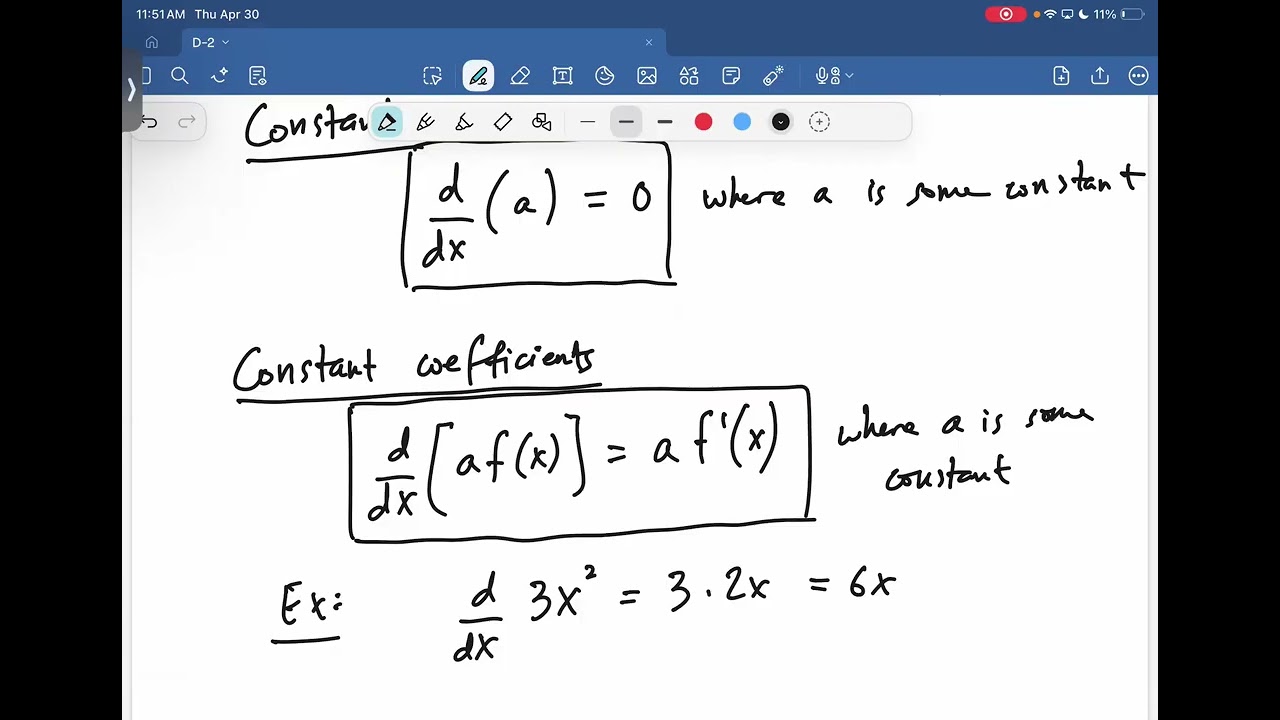 11:51 AM Thu Apr 30
11%
D-2
d/dx (a) = 0 where a is some constant
Constant coefficients
d/dx [a f(x)] = a f'(x) where a is some
constant
Ex: d/dx 3x² = 3 · 2x = 6x